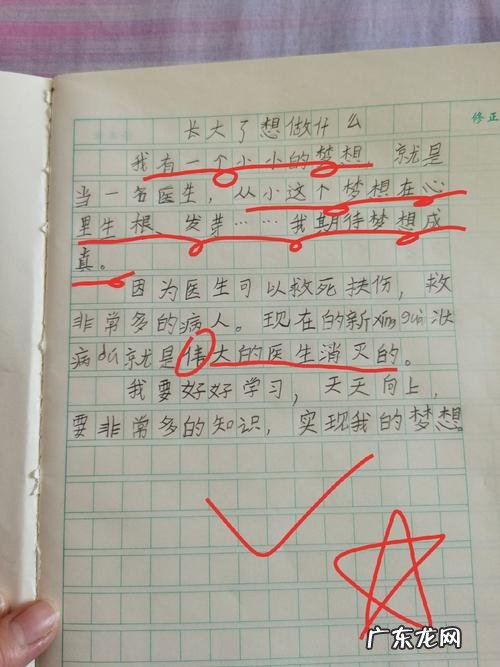 修正
长大了想做什么
我有一个小小的梦想，就是
当一名医生，从小这个梦想在心
里生根、发芽……我期待梦想成
真。
因为医生可以救死扶伤，救
非常多的病人。现在的新xīng guān状
病dú就是伟大的医生消灭的。
我要好好学习，天天向上，
要非常多的知识，实现我的梦想。
广东龙网